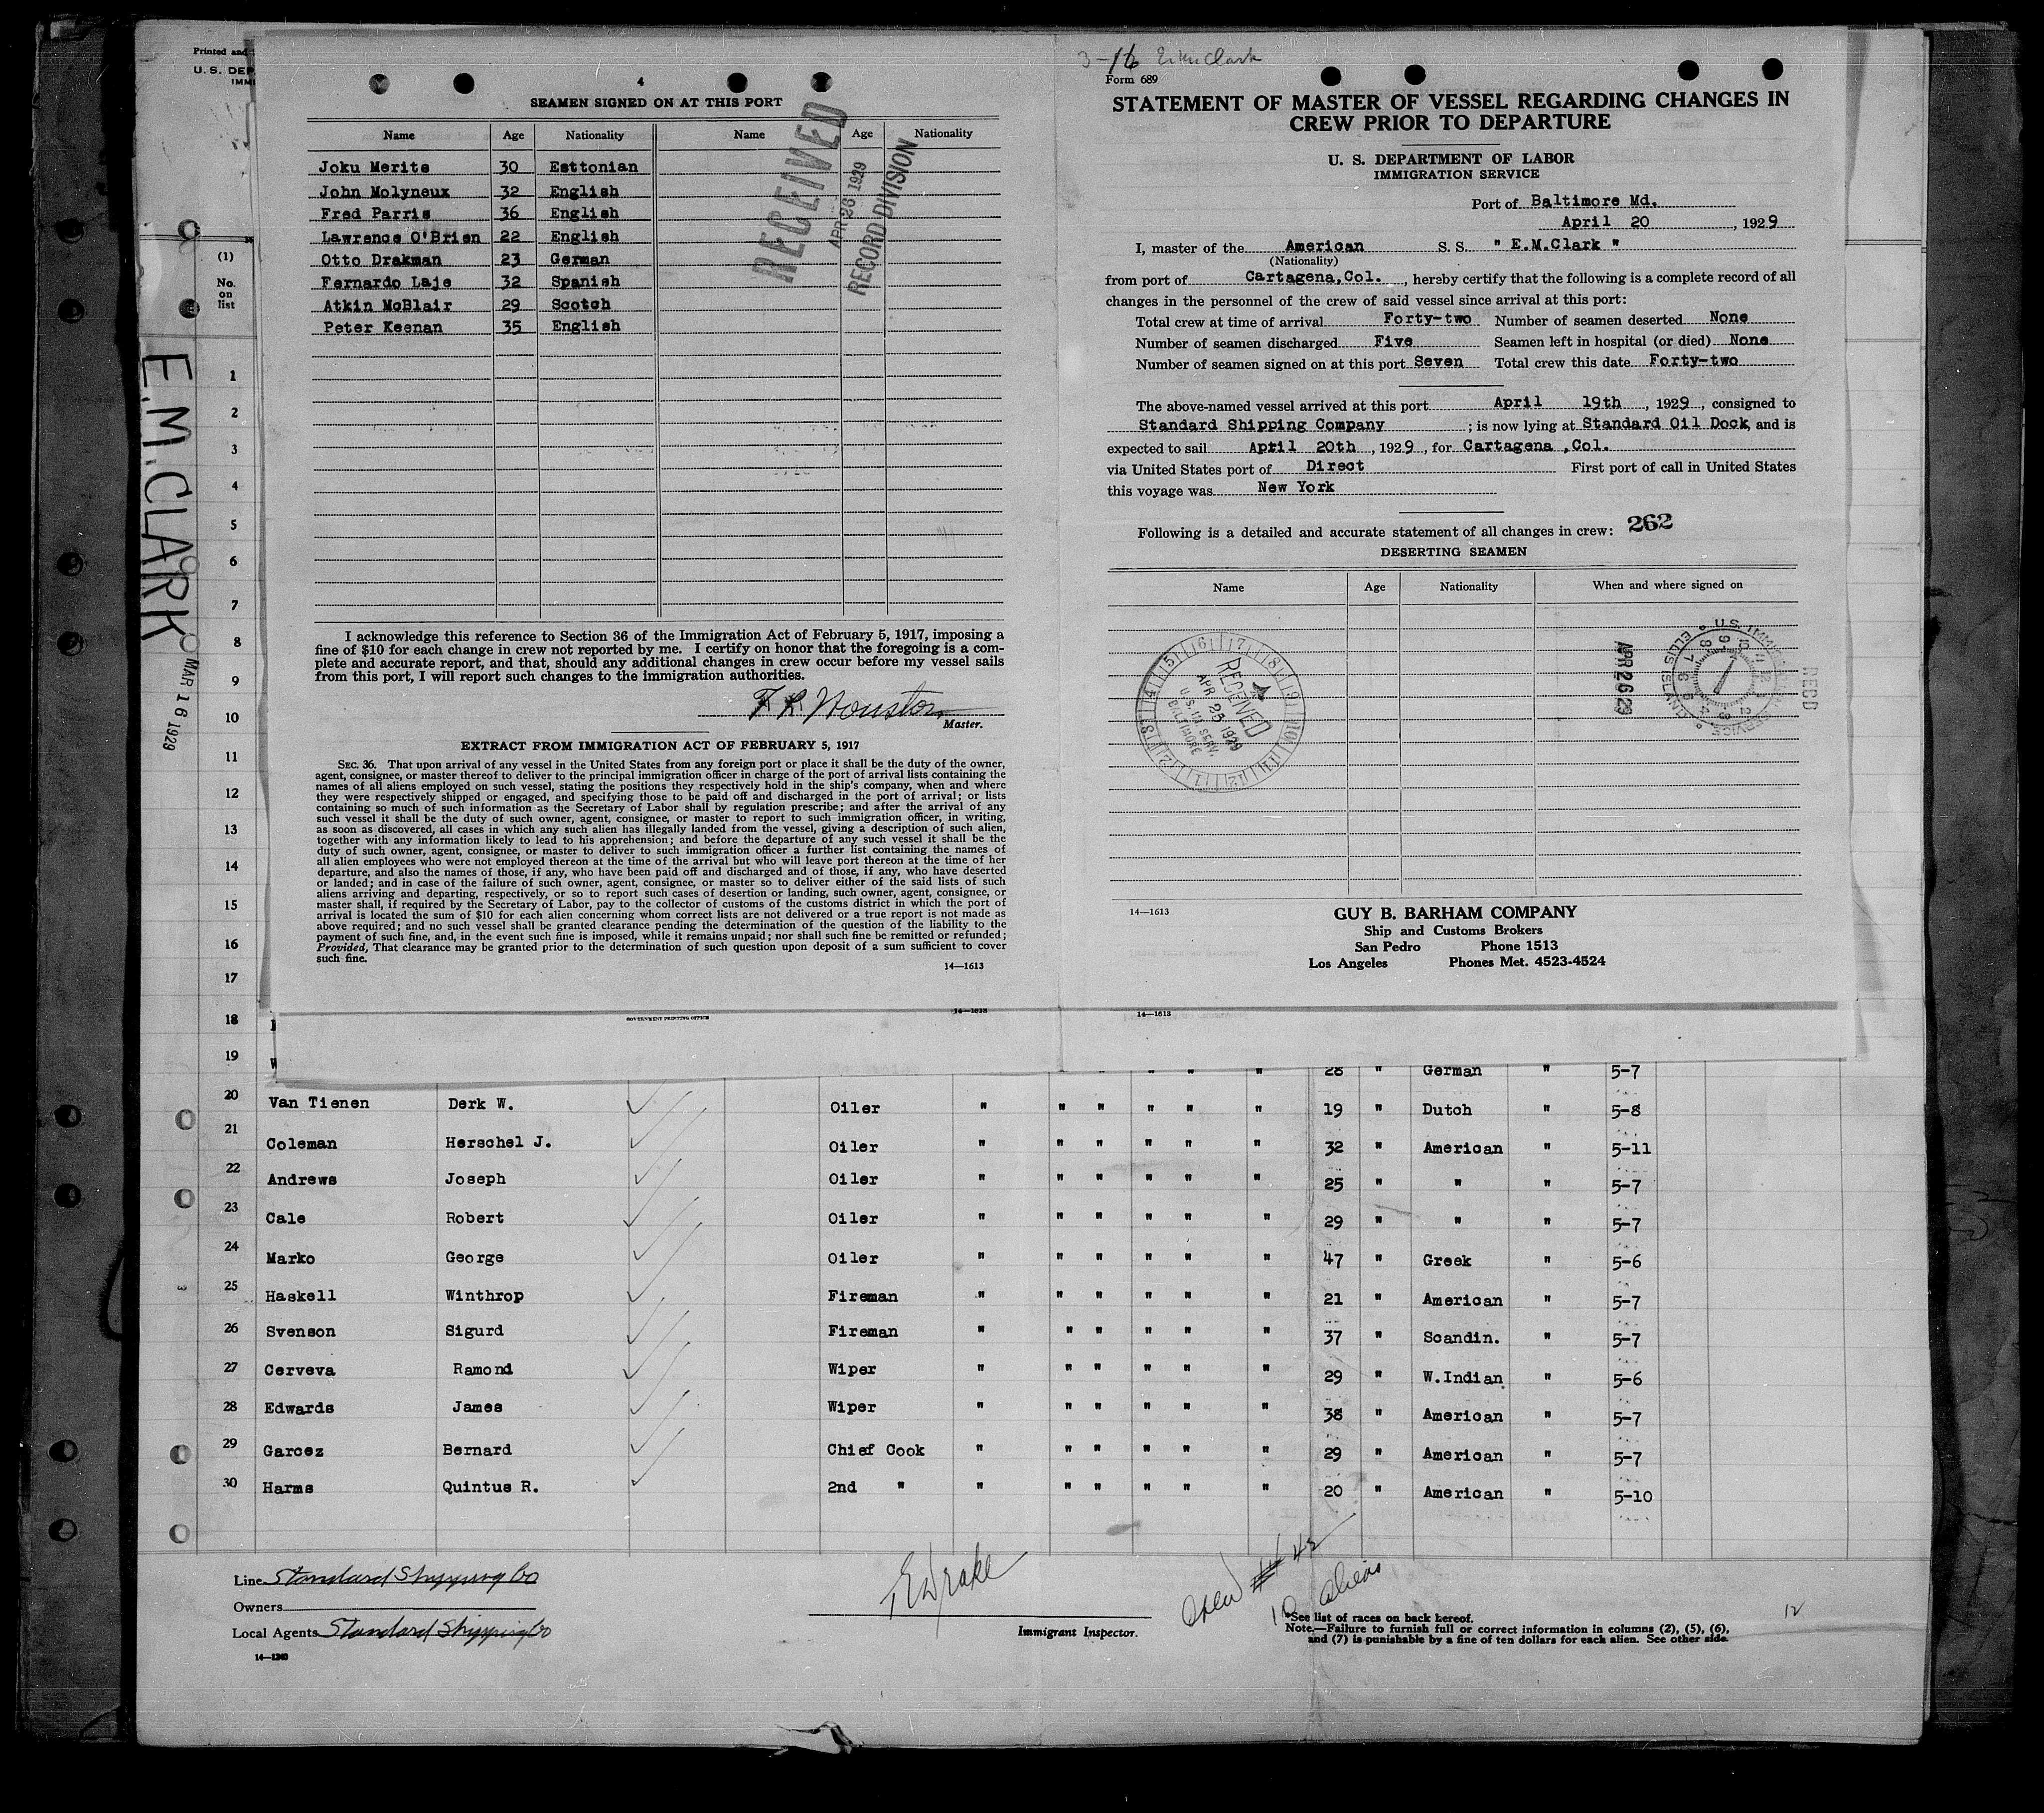 Printed and
U. S. DEP
IMMI
(1)
No.
on
list
E.M.CLARK
MAR 16 1929
4
SEAMEN SIGNED ON AT THIS PORT
Name Age Nationality Name Age Nationality
Joku Merits 30 Esttonian
John Molyneux 32 English
Fred Parris 36 English
Lawrence O'Brien 22 English
Otto Drakman 23 German
Fernardo Laje 32 Spanish
Atkin McBlair 29 Scotch
Peter Keenan 35 English
RECEIVED
APR 26 1929
RECORD DIVISION
I acknowledge this reference to Section 36 of the Immigration Act of February 5, 1917, imposing a
fine of $10 for each change in crew not reported by me. I certify on honor that the foregoing is a com-
plete and accurate report, and that, should any additional changes in crew occur before my vessel sails
from this port, I will report such changes to the immigration authorities.
F. R. Houston
Master.
EXTRACT FROM IMMIGRATION ACT OF FEBRUARY 5, 1917
SEC. 36. That upon arrival of any vessel in the United States from any foreign port or place it shall be the duty of the owner,
agent, consignee, or master thereof to deliver to the principal immigration officer in charge of the port of arrival lists containing the
names of all aliens employed on such vessel, stating the positions they respectively hold in the ship's company, when and where
they were respectively shipped or engaged, and specifying those to be paid off and discharged in the port of arrival; or lists
containing so much of such information as the Secretary of Labor shall by regulation prescribe; and after the arrival of any
such vessel it shall be the duty of such owner, agent, consignee, or master to report to such immigration officer, in writing,
as soon as discovered, all cases in which any such alien has illegally landed from the vessel, giving a description of such alien,
together with any information likely to lead to his apprehension; and before the departure of any such vessel it shall be the
duty of such owner, agent, consignee, or master to deliver to such immigration officer a further list containing the names of
all alien employees who were not employed thereon at the time of the arrival but who will leave port thereon at the time of her
departure, and also the names of those, if any, who have been paid off and discharged and of those, if any, who have deserted
or landed; and in case of the failure of such owner, agent, consignee, or master so to deliver either of the said lists of such
aliens arriving and departing, respectively, or so to report such cases of desertion or landing, such owner, agent, consignee, or
master shall, if required by the Secretary of Labor, pay to the collector of customs of the customs district in which the port of
arrival is located the sum of $10 for each alien concerning whom correct lists are not delivered or a true report is not made as
above required; and no such vessel shall be granted clearance pending the determination of the question of the liability to the
payment of such fine, and, in the event such fine is imposed, while it remains unpaid; nor shall such fine be remitted or refunded;
Provided, That clearance may be granted prior to the determination of such question upon deposit of a sum sufficient to cover
such fine.
14—1613
3-16 E.M. Clark
Form 689
STATEMENT OF MASTER OF VESSEL REGARDING CHANGES IN
CREW PRIOR TO DEPARTURE
U. S. DEPARTMENT OF LABOR
IMMIGRATION SERVICE
Port of Baltimore Md.
April 20, 1929
I, master of the American S. S. " E.M.Clark "
(Nationality)
from port of Cartagena,Col. , hereby certify that the following is a complete record of all
changes in the personnel of the crew of said vessel since arrival at this port:
Total crew at time of arrival Forty-two Number of seamen deserted None
Number of seamen discharged Five Seamen left in hospital (or died) None
Number of seamen signed on at this port Seven Total crew this date Forty-two
The above-named vessel arrived at this port April 19th , 1929 , consigned to
Standard Shipping Company ; is now lying at Standard Oil Dock, and is
expected to sail April 20th , 1929 , for Cartagena ,Col.
via United States port of Direct First port of call in United States
this voyage was New York
Following is a detailed and accurate statement of all changes in crew: 262
DESERTING SEAMEN
Name Age Nationality When and where signed on
RECEIVED
APR 25 1929
U.S. IM. SERV.
BALTIMORE
APR 26 29
U.S. IMMIGRATION SERVICE ELLIS ISLAND
REC'D
14—1613
GUY B. BARHAM COMPANY
Ship and Customs Brokers
San Pedro Phone 1513
Los Angeles Phones Met. 4523-4524
GOVERNMENT PRINTING OFFICE
14—1613
14—1613
1
2
3
4
5
6
7
8
9
10
11
12
13
14
15
16
17
18
19 W 28 " German " 5-7
20 Van Tienen Derk W. Oiler " " " " " " 19 " Dutch " 5-8
21 Coleman Herschel J. Oiler " " " " " " 32 " American " 5-11
22 Andrews Joseph Oiler " " " " " " 25 " " " 5-7
23 Cale Robert Oiler " " " " " " 29 " " " 5-7
24 Marko George Oiler " " " " " " 47 " Greek " 5-6
25 Haskell Winthrop Fireman " " " " " " 21 " American " 5-7
26 Svenson Sigurd Fireman " " " " " " 37 " Scandin. " 5-7
27 Cerveva Ramond Wiper " " " " " " 29 " W.Indian " 5-6
28 Edwards James Wiper " " " " " " 38 " American " 5-7
29 Garcez Bernard Chief Cook " " " " " " 29 " American " 5-7
30 Harms Quintus R. 2nd " " " " " " " 20 " American " 5-10
Line Standard Shipping Co
Owners
Local Agents Standard Shipping Co
14—1240
Drake
Immigrant Inspector.
Crew # 42
10 aliens
12
*See list of races on back hereof.
Note.—Failure to furnish full or correct information in columns (2), (5), (6),
and (7) is punishable by a fine of ten dollars for each alien. See other side.